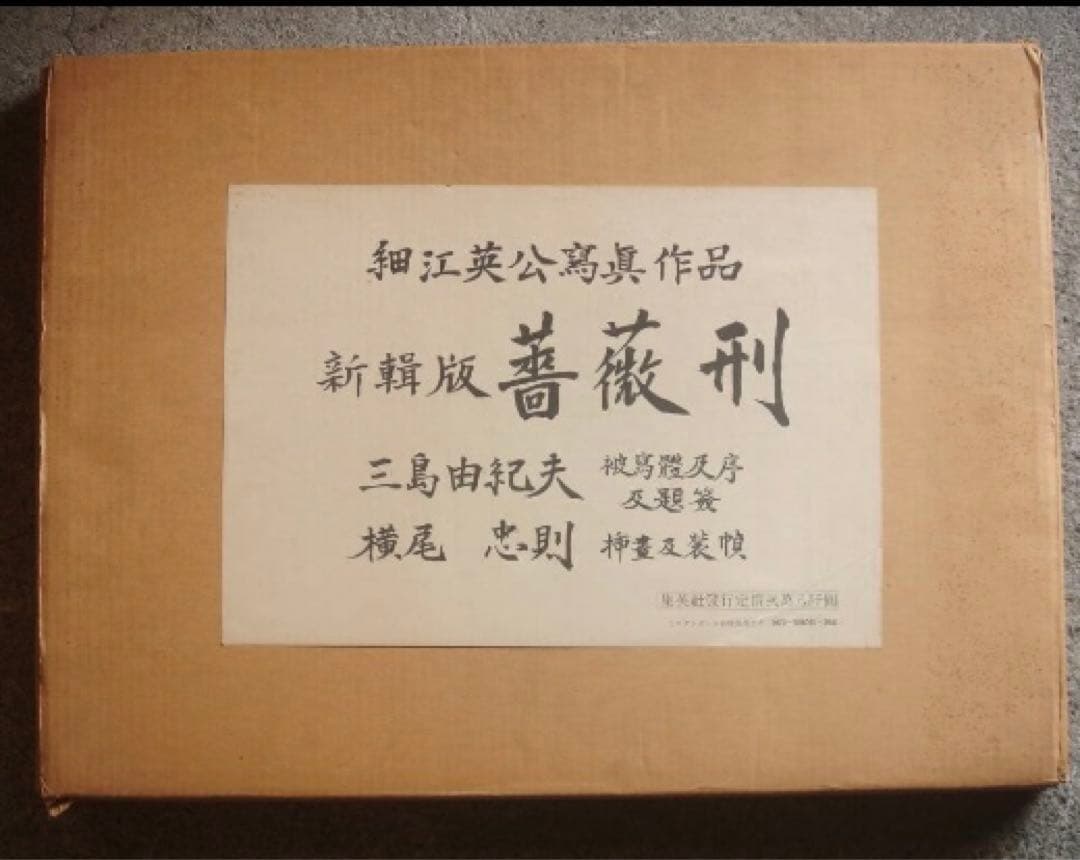 細江英公寫眞作品
新輯版 薔薇刑
三島由紀夫 被寫體及序
及題簽
横尾 忠則 揷畫及装幀
集英社發行定價